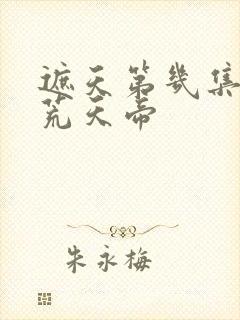 遮天第几集
荒天帝
朱永梅